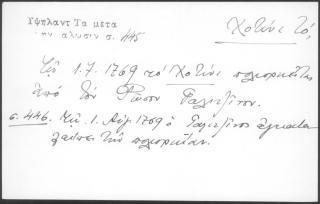 Υψηλαντ Τα μετα
την αλωσιν σ. 445
Χοτίνι τό,
Τῇ 1.7.1769 τό Χοτίνι πολιορκεῖται
ἀπό τόν Ρῶσον Γαλιτζῖνον.
σ. 446. Τῇ 1. Αὐγ. 1769 ὁ Γαλιτζῖνος ἐγκατα
λείπει τήν πολιορκίαν.